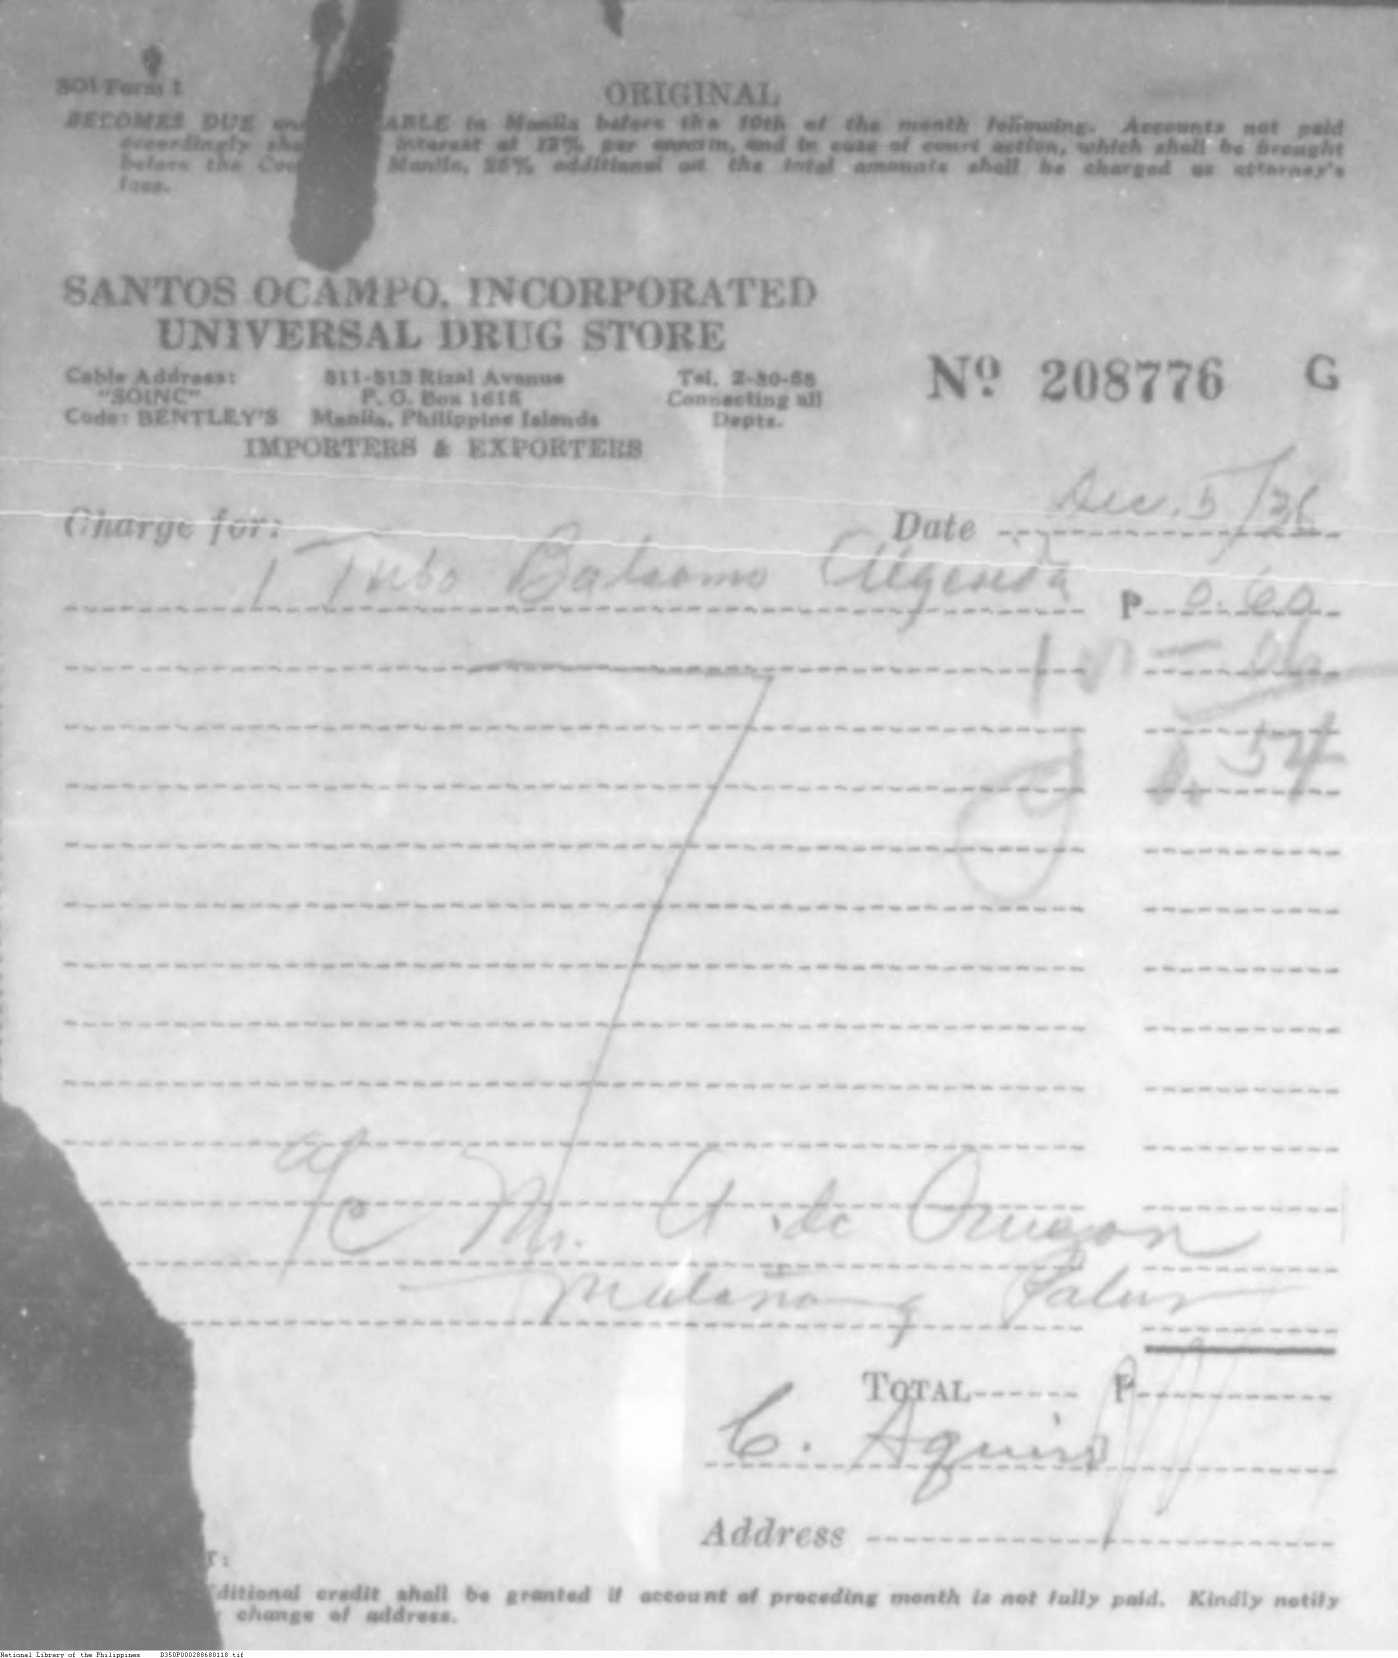 SOI Form 1
ORIGINAL
BECOMES DUE and ABLE in Manila before the 10th of the month following. Accounts not paid
accordingly sha interest at 12% per annum, and in case of court action, which shall be brought
before the Cou Manila, 25% additional on the total amounts shall be charged as attorney's
fees.
SANTOS OCAMPO, INCORPORATED
UNIVERSAL DRUG STORE
Cable Address: 811-813 Rizal Avenue Tel. 2-30-58
"SOINC" P. O. Box 1618 Connecting all
Code: BENTLEY'S Manila, Philippine Islands Depts.
IMPORTERS & EXPORTERS
Nº 208776 G
Charge for: Date Dec. 5/36
1 Tubo Balsamo ₱ 0.60
06
0.54
a/c Mr. A. de
TOTAL ₱
C. Aquino
Address
T:
ditional credit shall be granted if account of preceding month is not fully paid. Kindly notify
change of address.
National Library of the Philippines